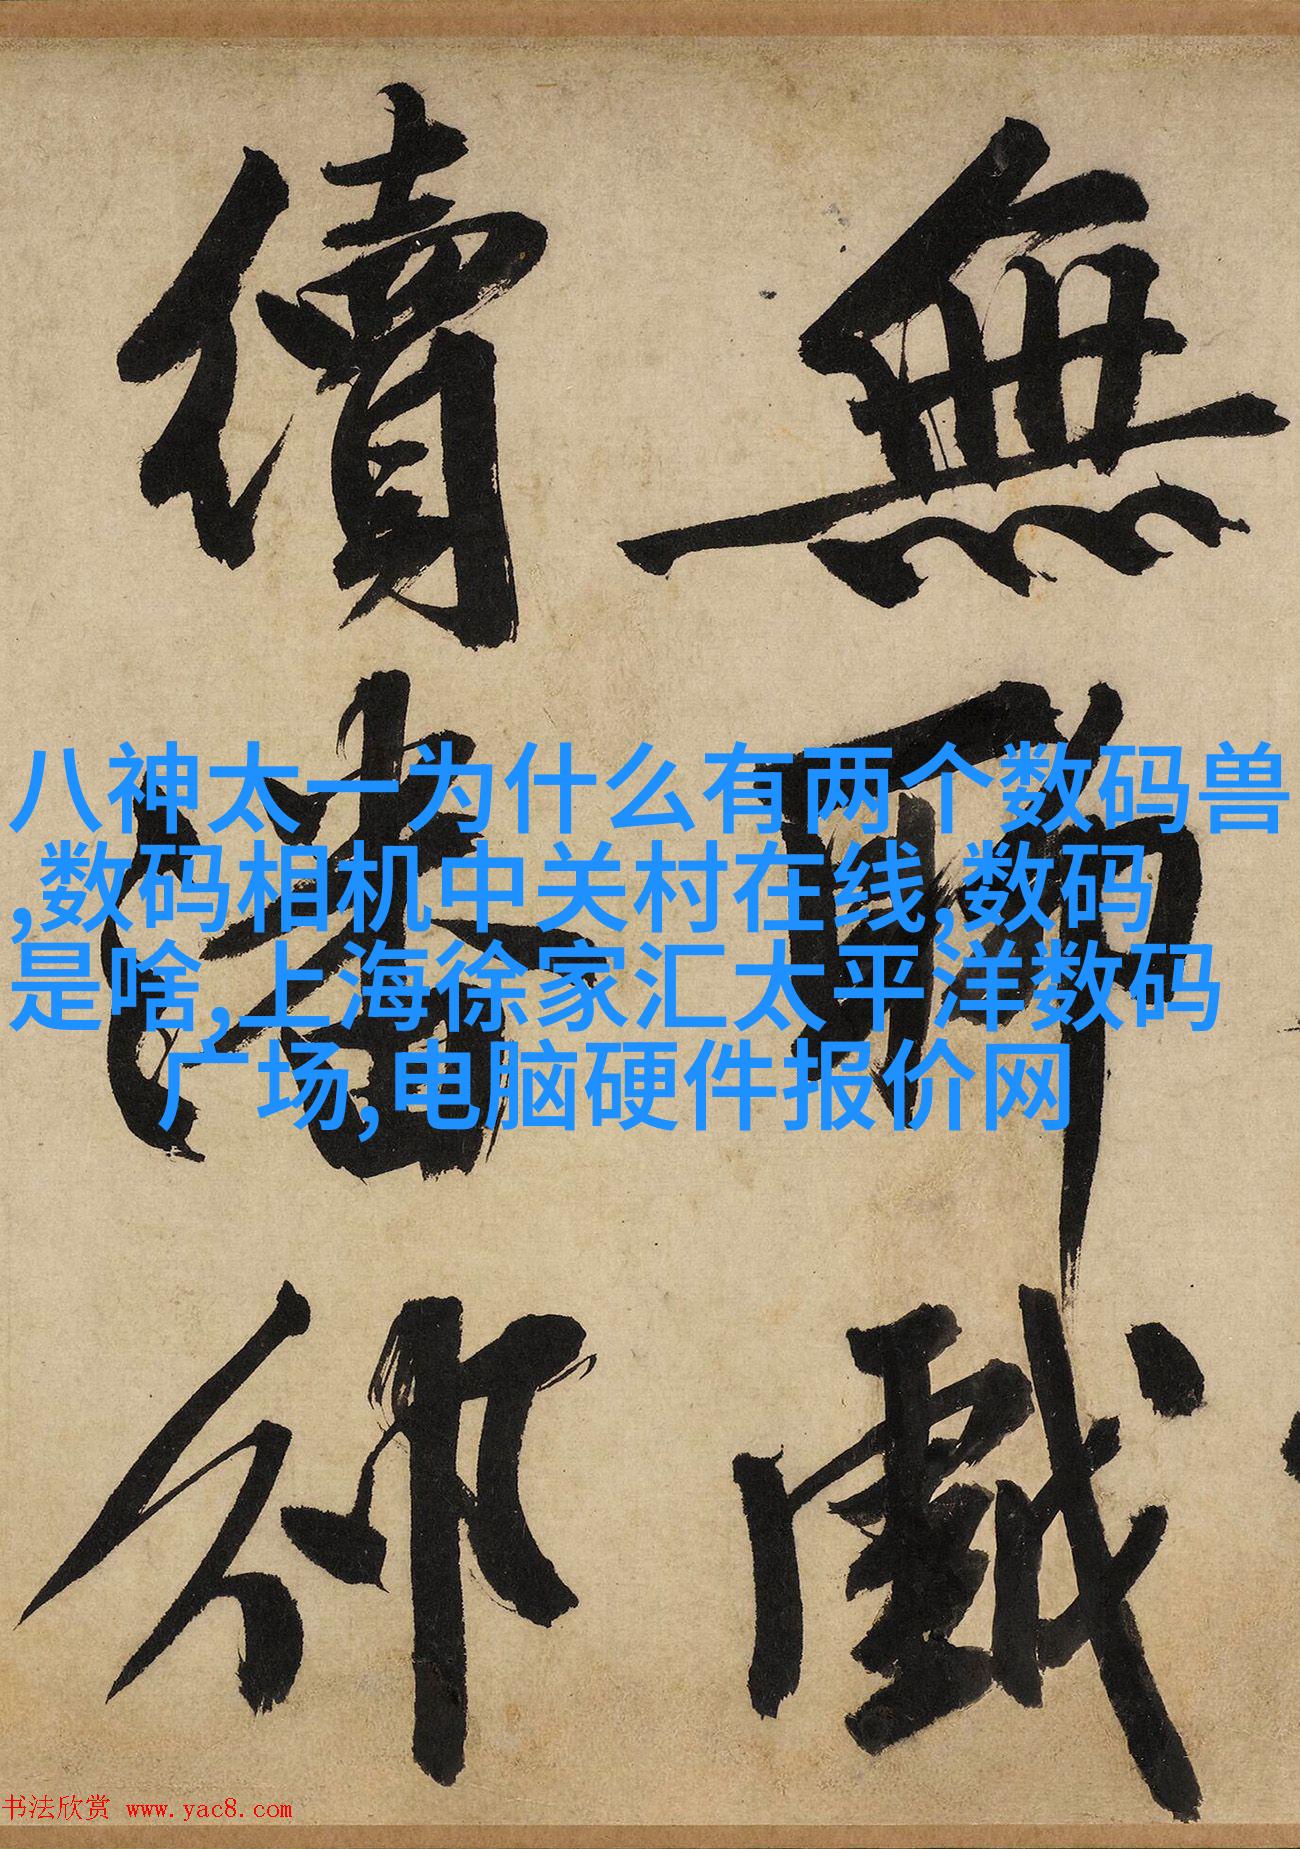 無聊戲
續潘邠
八神太一为什么有两个数码兽
,数码相机中关村在线,数码
是啥,上海徐家汇太平洋数码
广场,电脑硬件报价网
书法欣赏 www.yac8.com